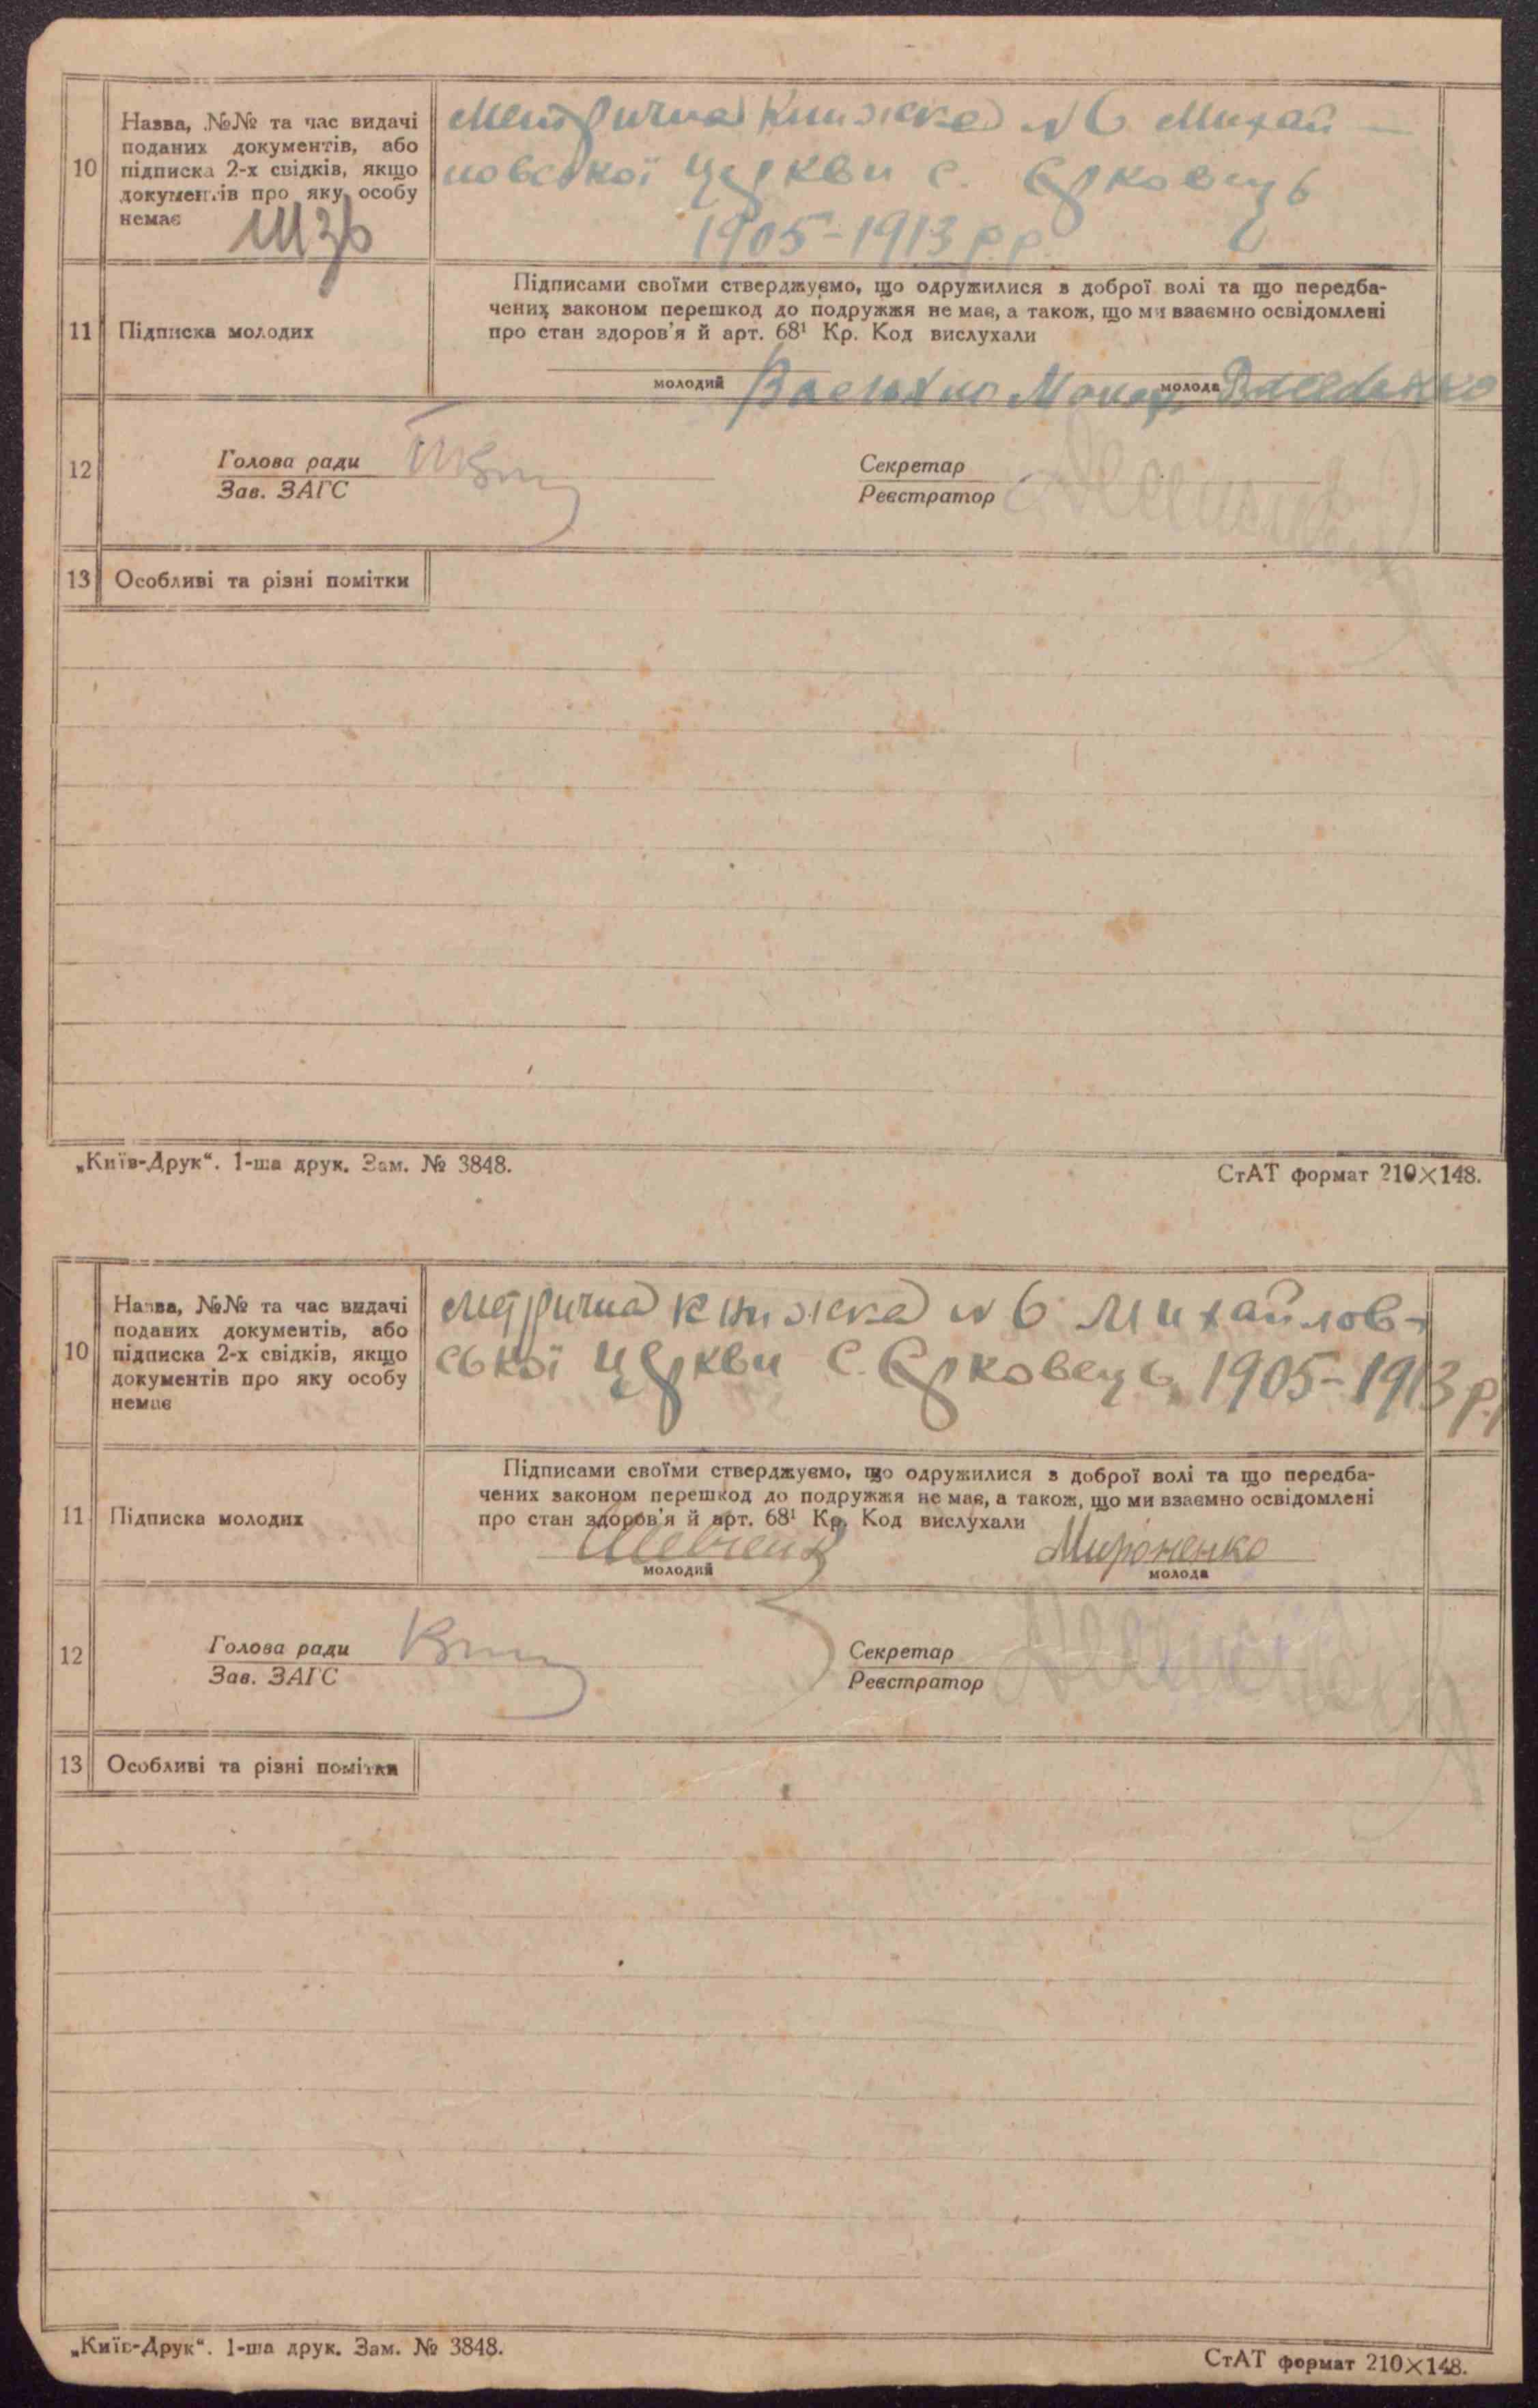 10
Назва, №№ та час видачі
поданих документів, або
підписка 2-х свідків, якщо
документів про яку особу
немає
Метрична книжка № 6 Михай-
ловської церкви с. Єрковець
1905-1913 р.р.
11
Підписка молодих
Підписами своїми стверджуємо, що одружилися з доброї волі та що передба-
чених законом перешкод до подружжя не має, а також, що ми взаємно освідомлені
про стан здоров'я й арт. 68¹ Кр. Код вислухали
молодий
молода
12
Голова ради
Зав. ЗАГС
Секретар
Реєстратор
13
Особливі та різні помітки
„Київ-Друк“. 1-ша друк. Зам. № 3848.
СтАТ формат 210×148.
10
Назва, №№ та час видачі
поданих документів, або
підписка 2-х свідків, якщо
документів про яку особу
немає
Метрична книжка № 6 Михайлов-
ської церкви с. Єрковець 1905-1913 р.
11
Підписка молодих
Підписами своїми стверджуємо, що одружилися з доброї волі та що передба-
чених законом перешкод до подружжя не має, а також, що ми взаємно освідомлені
про стан здоров'я й арт. 68¹ Кр. Код вислухали
Мироненко
молодий
молода
12
Голова ради
Зав. ЗАГС
Секретар
Реєстратор
13
Особливі та різні помітки
„Київ-Друк“. 1-ша друк. Зам. № 3848.
СтАТ формат 210×148.